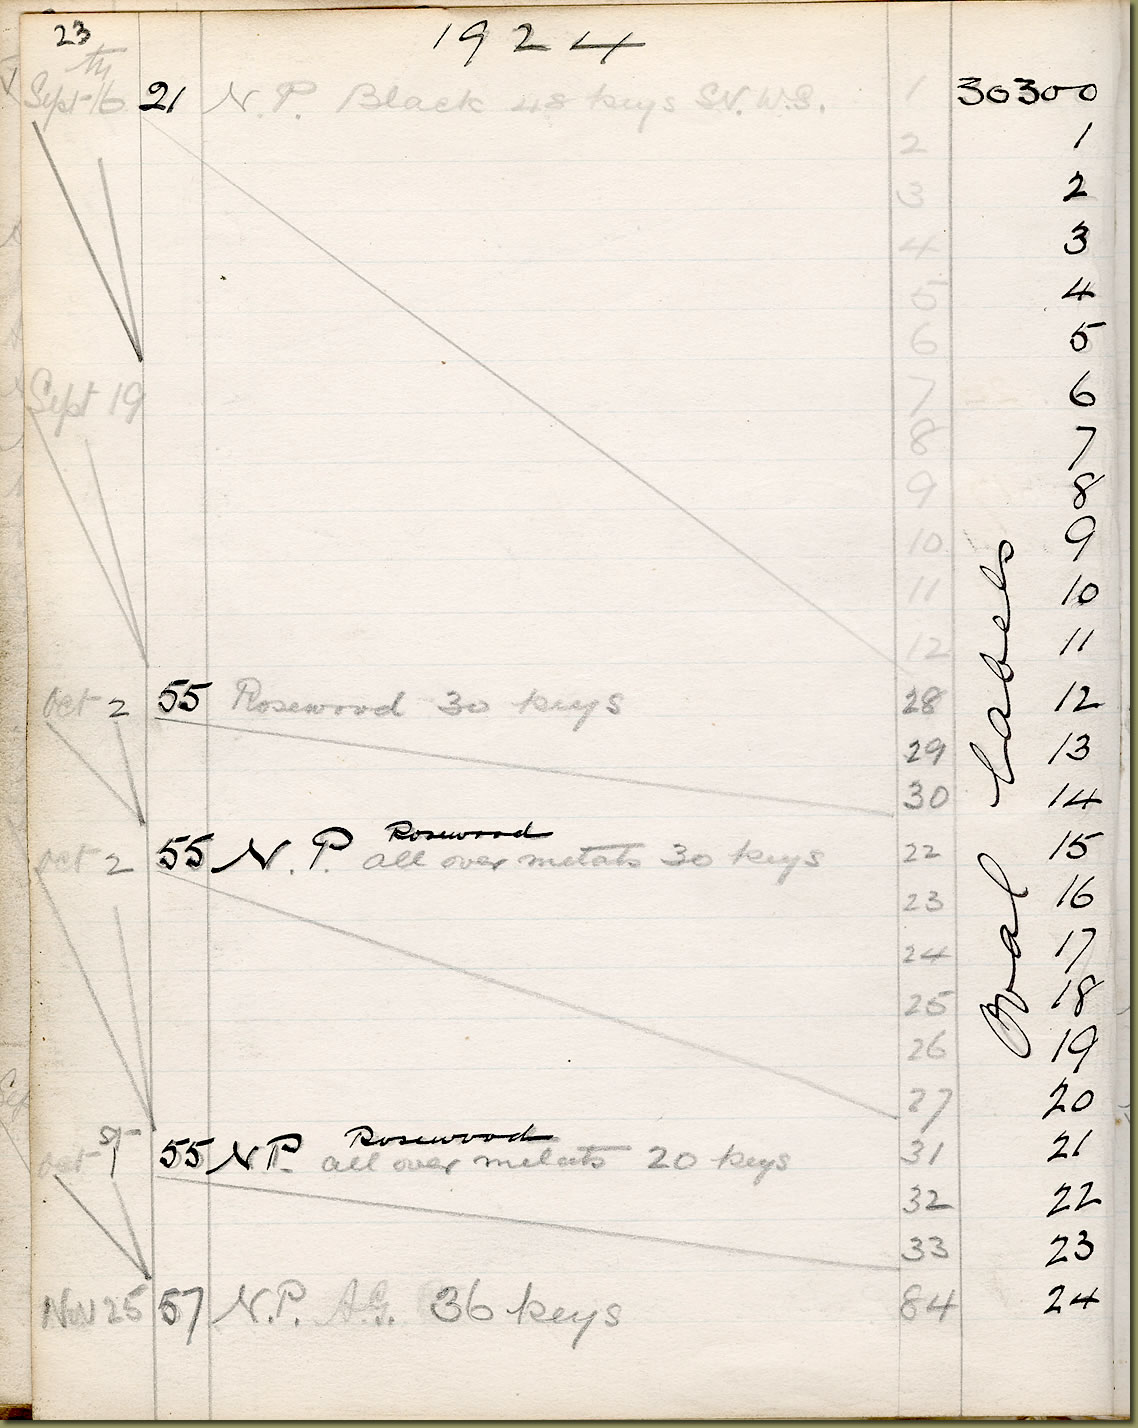 23 1924
Sept 16 ty 21 N. P. Black 48 keys S.V. W.S. 1 30300
2 1
3 2
4 3
5 4
6 5
Sept 19 7 6
8 7
9 8
10 9
11 10
12 11
Oct 2 55 Rosewood 30 keys 28 12
29 13
30 14
Rosewood
Oct 2 55 N. P. all over metals 30 keys 22 15
23 16
24 17
25 18
26 19
27 20
Rosewood
Oct 1st 55 N P. all over metals 20 keys 31 21
32 22
33 23
Nov 25 57 N.P. A.G. 36 keys 84 24
Oval Labels